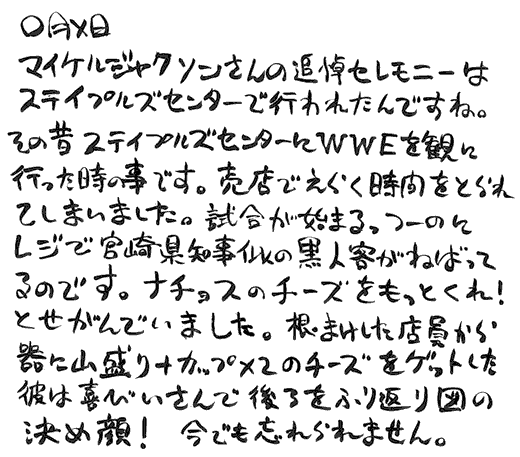 〇月×日
マイケルジャクソンさんの追悼セレモニーは
ステイプルズセンターで行われたんですね。
その昔ステイプルズセンターにWWEを観に
行った時の事です。売店でえらく時間をとられ
てしまいました。試合が始まるっつーのに
レジで宮崎県知事似の黒人客がねばって
るのです。ナチョスのチーズをもっとくれ!
とせがんでいました。根まけした店員から
器に山盛り+カップ×2のチーズをゲットした
彼は喜びいさんで後ろをふり返り図の
決め顔! 今でも忘れられません。